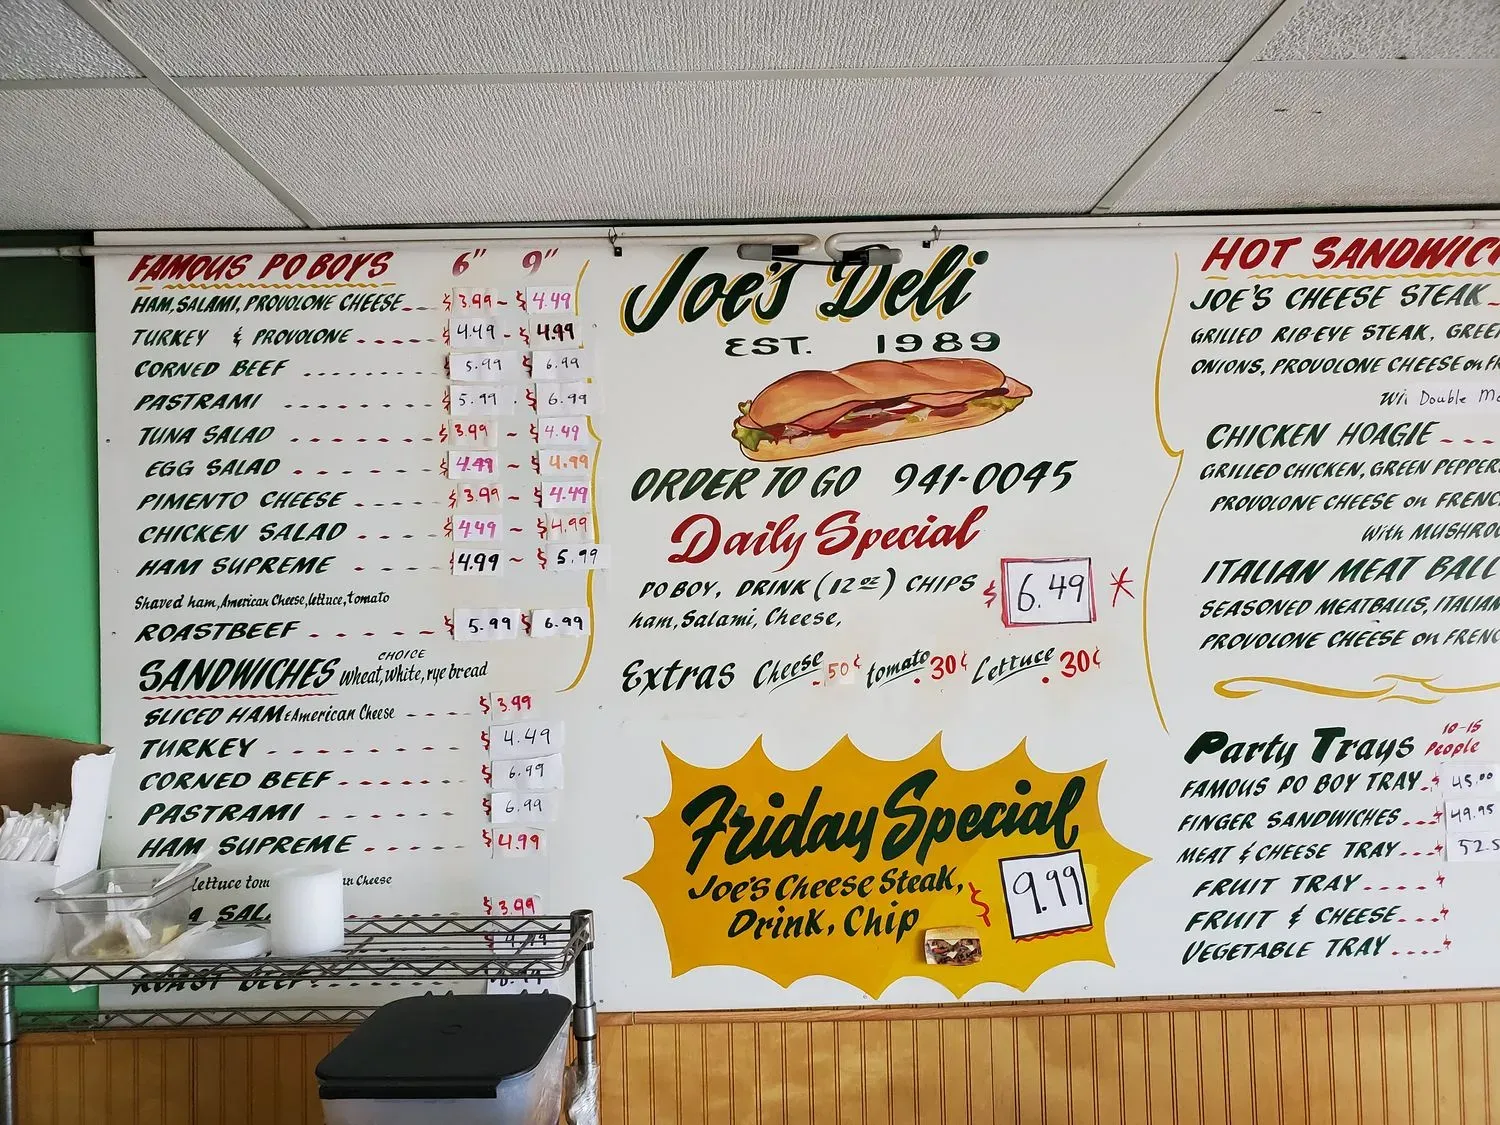 FAMOUS PO BOYS 6" 9"
HAM, SALAMI, PROVOLONE CHEESE $3.99 ~ $4.49
TURKEY & PROVOLONE $4.49 - $4.99
CORNED BEEF $5.99 $6.99
PASTRAMI $5.99 $6.99
TUNA SALAD $3.99 ~ $4.49
EGG SALAD $4.49 ~ $4.99
PIMENTO CHEESE $3.99 ~ $4.49
CHICKEN SALAD $4.49 ~ $4.99
HAM SUPREME $4.99 ~ $5.99
Shaved ham, American Cheese, lettuce, tomato
ROASTBEEF $5.99 $6.99
CHOICE
SANDWICHES Wheat, White, rye bread
SLICED HAM & American Cheese $3.99
TURKEY $4.49
CORNED BEEF $6.99
PASTRAMI $6.99
HAM SUPREME $4.99
lettuce Cheese
$3.99
ROAST BEEF
Joe's Deli
EST. 1989
ORDER TO GO 941-0045
Daily Special
PO BOY, DRINK (12 oz) CHIPS $6.49 *
ham, Salami, Cheese,
Extras Cheese .50¢ tomato .30¢ Lettuce .30¢
Friday Special
Joe's Cheese Steak,
Drink, Chip $9.99
HOT SANDWIC
JOE'S CHEESE STEAK
GRILLED RIB-EYE STEAK, GREE
ONIONS, PROVOLONE CHEESE on FR
Wi Double M
CHICKEN HOAGIE
GRILLED CHICKEN, GREEN PEPPER
PROVOLONE CHEESE on FRENC
With MUSHROO
ITALIAN MEAT BALL
SEASONED MEATBALLS, ITALIAN
PROVOLONE CHEESE on FRENC
Party Trays 10-15 People
FAMOUS PO BOY TRAY $45.00
FINGER SANDWICHES $49.95
MEAT & CHEESE TRAY $52.5
FRUIT TRAY $
FRUIT & CHEESE $
VEGETABLE TRAY $